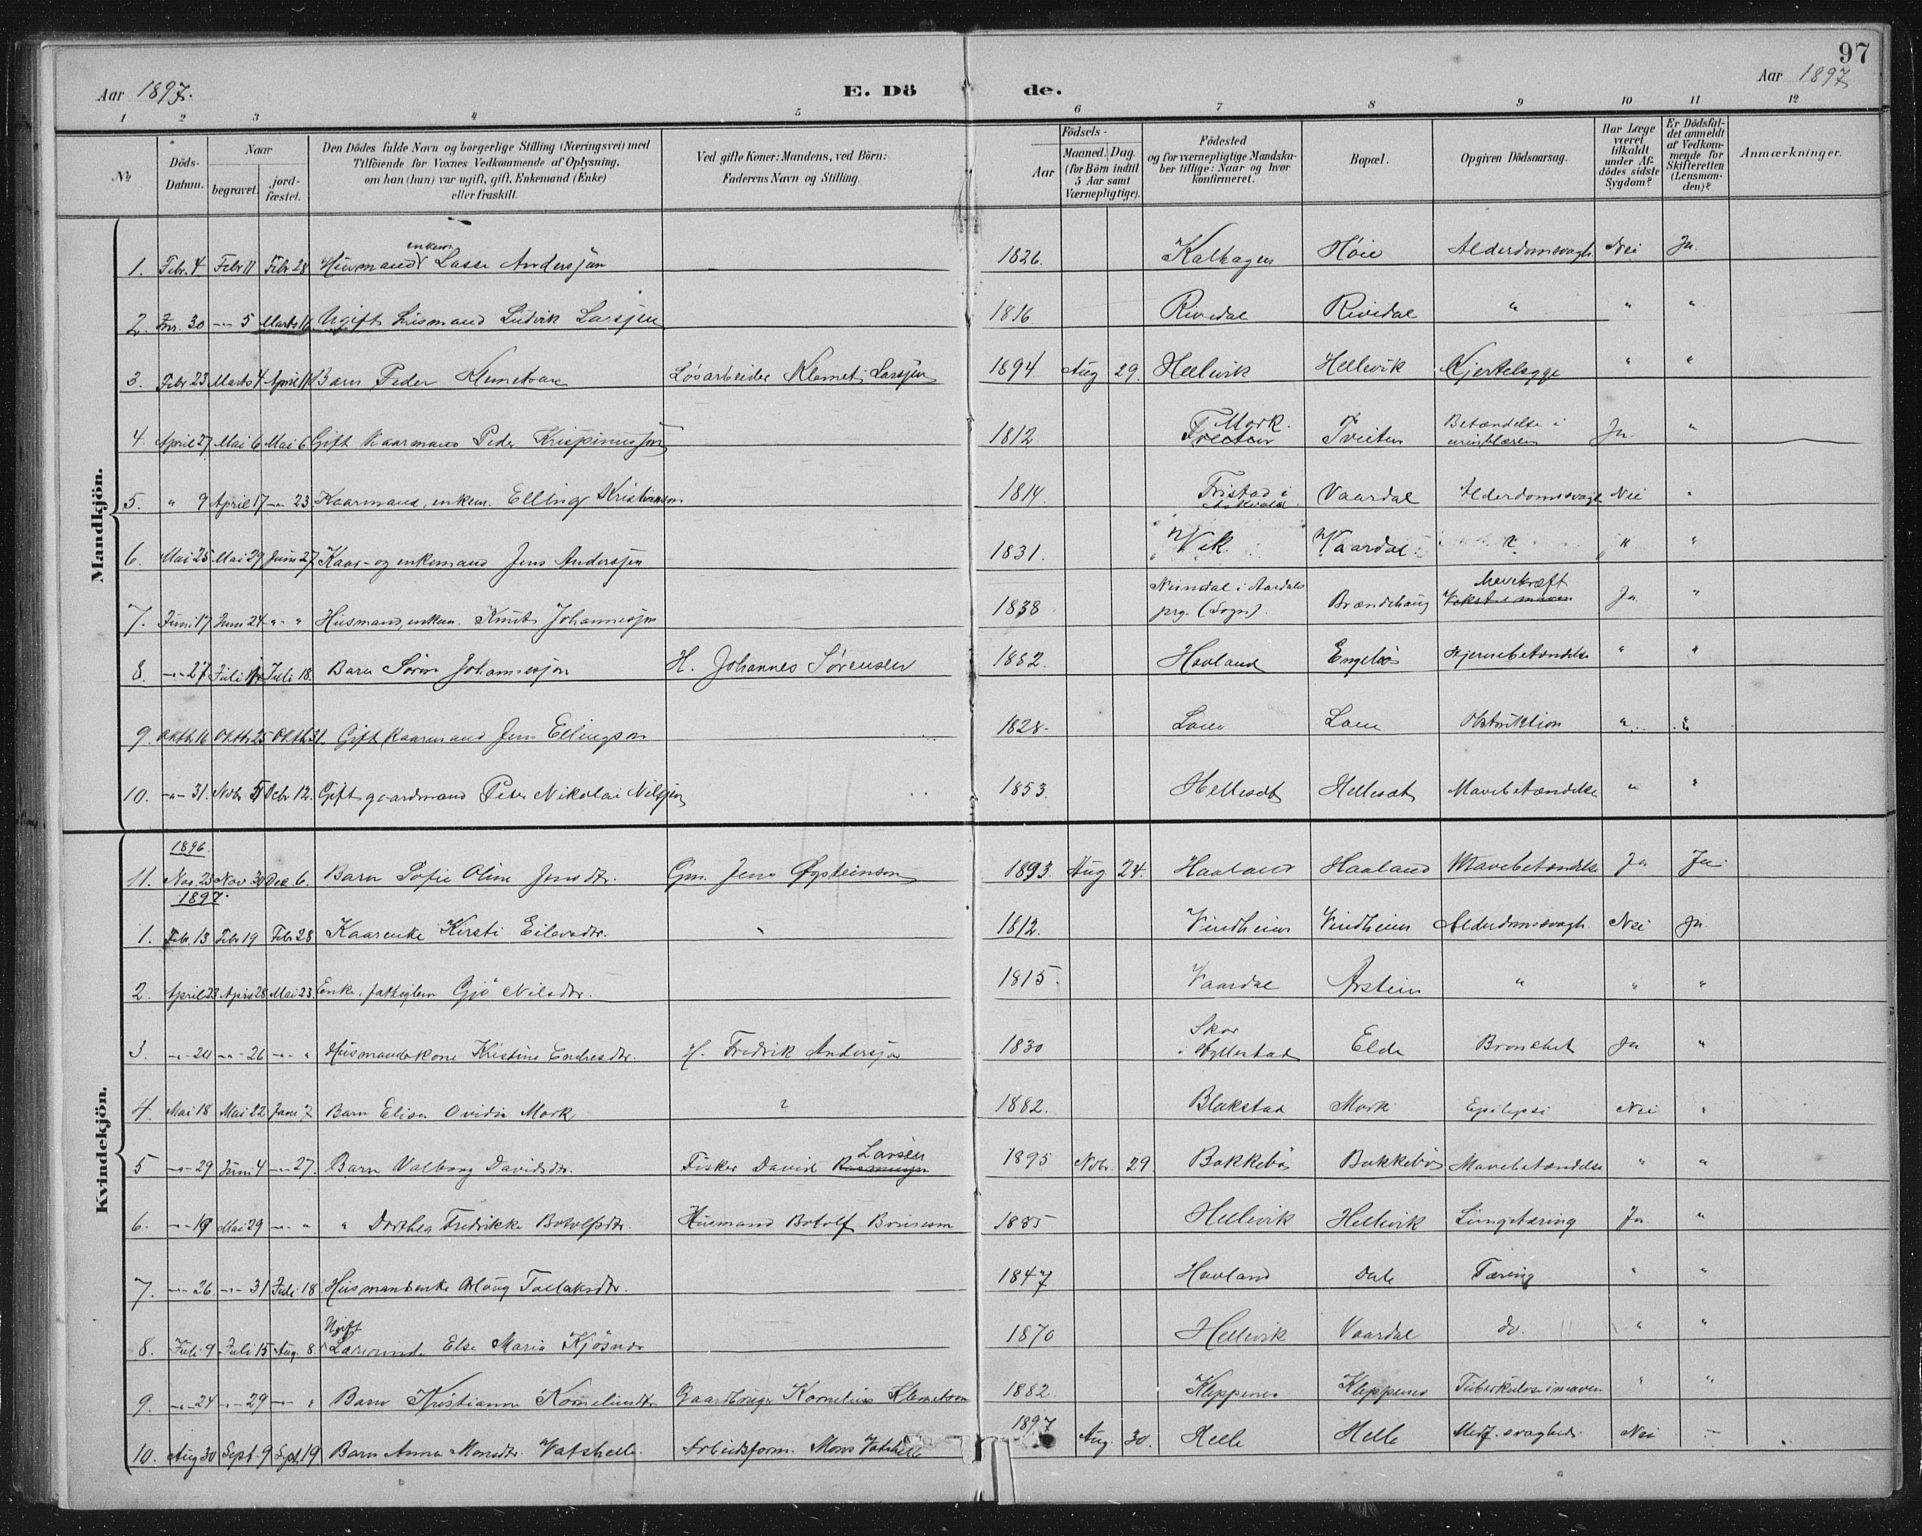 97
Aar 1897.
E. Dö
de.
Aar 1897
1 2 3 4 5 6 7 8 9 10 11 12
No
Döds-Datum.
Naar
begravet.
jord-fæstet.
Den Dödes fulde Navn og borgerlige Stilling (Næringsvei) med
Tilföiende for Voxnes Vedkommende af Oplysning,
om han (hun) var ugift, gift, Enkemand (Enke)
eller fraskilt.
Ved gifte Koner: Mandens, ved Börn:
Faderens Navn og Stilling.
Födsels-
Aar
Maaned. Dag.
(for Börn indtil
5 Aar samt
Værnepligtige).
Födested
og for værnepligtige Mandska-
ber tillige: Naar og hvor
konfirmeret.
Bopæl.
Opgiven Dödsaarsag.
Har Læge
været
tilkaldt
under Af-
dödes sidste
Sygdom?
Er Dödsfal-
det anmeldt
af Vedkom-
mende for
Skifteretten
(Lensman-
den)?
Anmærkninger.
Mandkjön.
1. Febr. 4 Febr 11 Febr 28 Husmand enkem Lasse Andersjøn 1826. Kalhagen Höie Alderdomsvagh. Nei Ja
2. Jan. 30 -"- 5 Marts Ugift Lusmand Ludvik Larsjen 1816 Rivedal Rividal " " "
3. Febr 23 Marts 4 April 11 Barn Peder Klemetsøn Løsarbeider Klemet Larsjen 1894 Aug 29. Hellevik Hellevik Kjertelsyge " "
4. April 27 Mai 6 Mai 6 Gift Kaarmand Peder Krispinusjøn 1812 Mork. Tveiten Tveiten Betændelse i urinblæren Ja "
5. " 9 April 17 -"- 23 Kaarmand, enkem. Elling Kristianson 1814 Tristad i Askvold Vaardal Alderdomssvagh Nei "
6. Mai 25 Mai 29 Juni 27 Kaar- og enkemand Jens Andersjen 1831. Vik Vaardal " " "
7. Juni 17 Juni 24 -"- " Husmand, enkem. Knut Johannesjøn 1838 Nundal i Aardals prg. (Sogn). Brændehaug Mavekræft Ja "
8. -"- 27 Juli Juli 18. Barn Sørin Johannesjøn H. Johannes Sørensen 1882. Havland Engebö Hjernebetændelse " "
9. Oktbr 16 Oktbr 25 Oktb 31. Gift Kaarmand Jens Ellingson 1828. Lam Lam Obstruktion " "
10. -"- 31. Novbr 5 Debr 12. Gift gaardmand Peter Nikolai Nilsjen 1853. Hellesæt Hellesæt Mavebetændelse " "
Kvindekjön.
1896.
11. Nov. 23 Nov 30 Dec 6. Barn Sofie Oline Jensdtr. Gm. Jens Øysteinson 1893. Aug 24. Haaland Haaland Mavebetændelse Ja Ja
1897.
1. Febr. 13 Febr 19 Febr 28 Kaarenke Kersti Eilevsdtr. 1812. Vindheim Vindheim Alderdomssvagh Nei Ja
2. April 23 April 28 Mai 23. Enke, fattiglem Gjö Nilsdtr. 1815. Vaardal Arstein " " "
3. -"- 20 -"- 26 -"- " Husmandskone Kristine Endresdtr. H. Fredrik Andersjøn 1830 Skor i Hyllestad Elde Bronchet Ja "
4. Mai 18 Mai 22 Juni 7 Barn Elisa Ovidia Mork ? 1882. Blakstad Mork Epilepsi Nei "
5 -"- 29 Juni 4 -"- 27. Barn Valborg Davidsdtr. Fisker David Rasmusjen Larsen 1895 Nvbr. 29. Bakkebö Bakkebö Mavebetændelse " "
6. -"- 19 Mai 29 -"- " " Dorthea Fredrikke Botolfsdtr. Husmand Botolf 1885 Hellevik Hellevik Lungetæring Ja "
7. -"- 26. -"- 31 Juli 18 Husmandsenke Aslaug Tollaksdtr. 1847 Havland Dale Tæring " "
8. Juli 9 Juli 15 Aug. 8 Ugift Lærerinde Else Maria Kjösnes 1870 Hellevik Vaardal do. " "
9. -"- 24 -"- 29 -"- " Barn Kristianna Korneliusdtr Gaardbruger Kornelius Klemetson 1882. Kleppenes Kleppenes Tuberkulose i maven " "
10. Aug 30 Sept. 9 Sept. 19 Barn Anna Monsdtr. Vatshelle. Arbeidsform. Mons Vatshelle 1897 Aug 30. Helle Helle Medf. svaghed Nei –